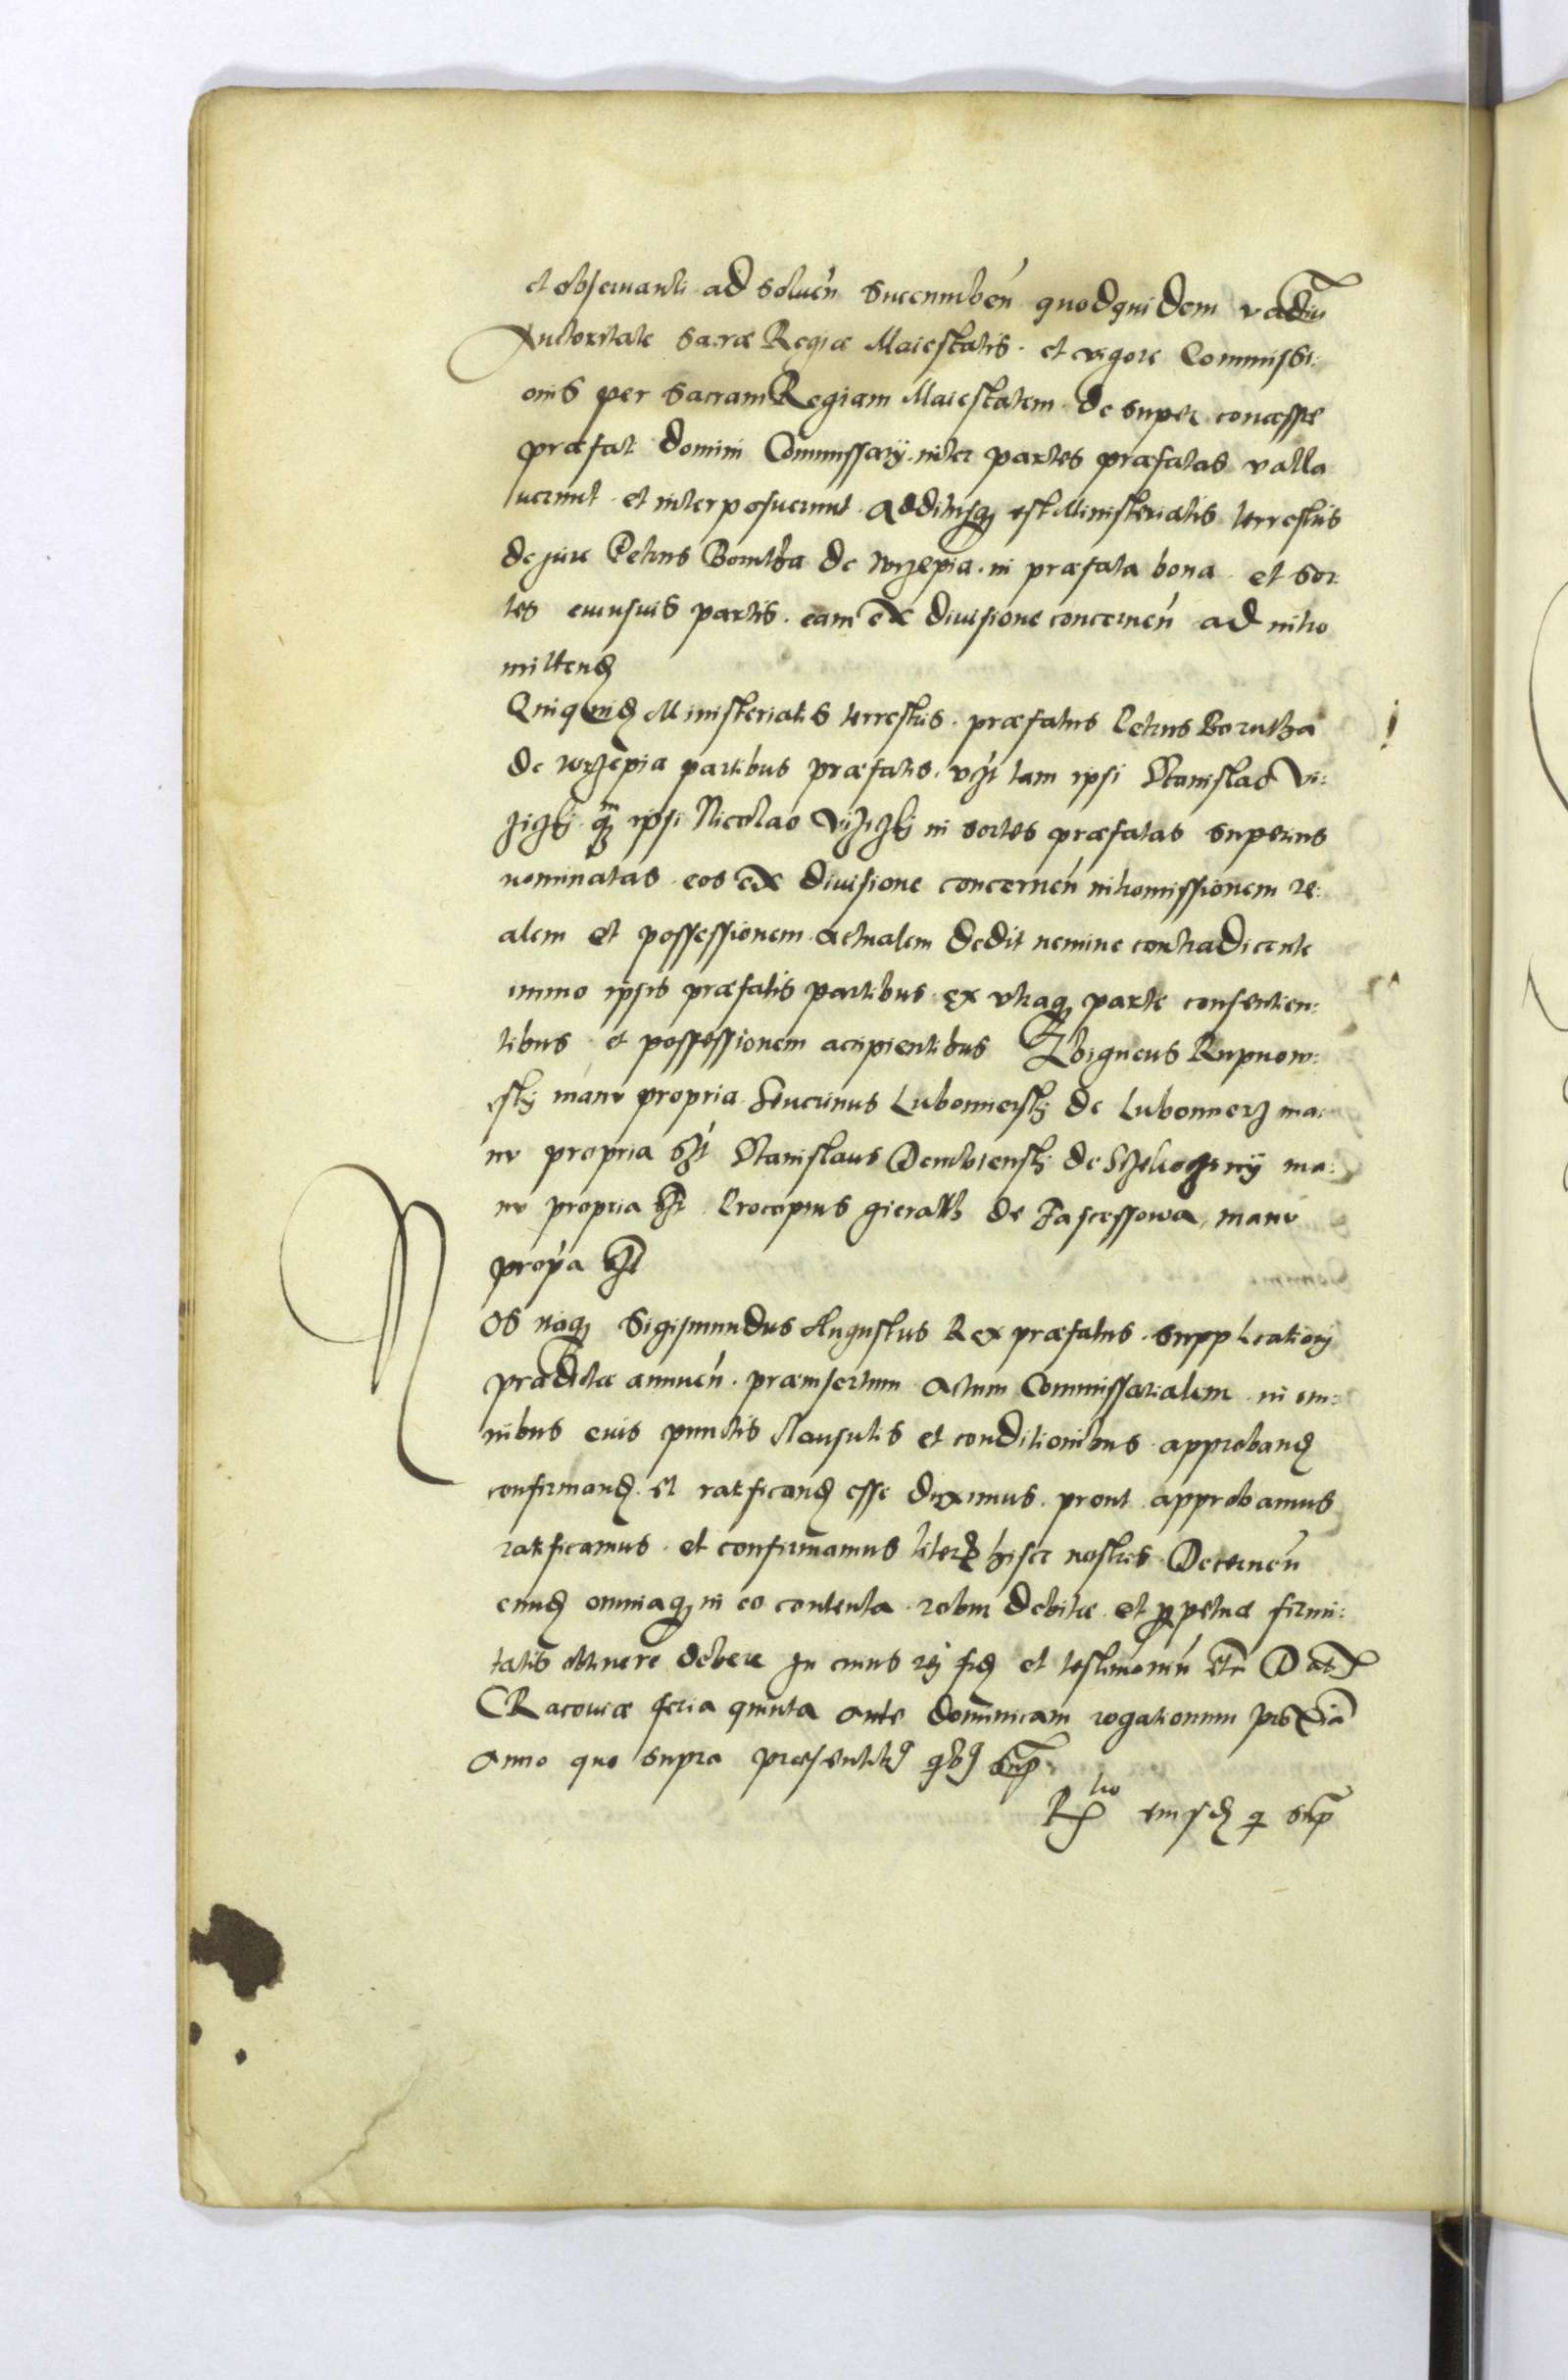 et observanti ad soluen̄ Succumben̄ quodquidem vadiū
Auctoritate Sacræ Regiæ Maiestatis. et vigore Commissi:
onis per Sacram Regiam Maiestatem de super concessæ
præfat domini Commissarij inter partes præfatas valla
uerunt et interposuerunt additusq3 est Ministerialis terrestris
de jure Petrus Borutha de wrzepia. in præfata bona et Sor:
tes cuiusuis partis. eam ex diuisione concernen̄ ad intro
mittend
Quiquid Ministerialis terrestris. præfatus Petrus Borutha
de wrzepia partibus præfatis. vzt tam ipsi Stanislao Vi:
zizkj q̃ȝ ipsi Nicolao Vizizkj in sortes præfatas superius
nominatas eos ex diuisione concernen̄ intromissionem re:
alem et possessionem actualem dedit nemine contradicente
immo ipsis præfatis partibus ex vtraq3 parte consentien:
tibus et possessionem accipientibus Zbigneus Rupnow:
skj manv propria Seuerinus Lubomierskj de Lubomierz ma:
nv propria szt Stanislaus Dembienskj de ma:
nv propria szt Procopius gieralth de Jascessowa, manv
prop̄a szt
Nos itaq3 Sigismundus Augustus Rex præfatus. supplicationj
prædictæ annuen̄. præinsertum Actum Commissarialem in om:
nibus eius punctis Clausulis et conditionibus approband
confirmand. et ratificand esse duximus. prout approbamus
ratificamus. et confirmamus liter hisce nostris. Decernen̄
eund omniaq3 in eo contenta robur debitæ et perpetuæ firmi:
tatis obtinere debere In cuius rei fid et testimoniū etc Dat
CRacouiæ feria quinta ante dominicam rogationum proxiā
Anno quo supra præsentib9 qb9 sup
Rtio eiusd q sup